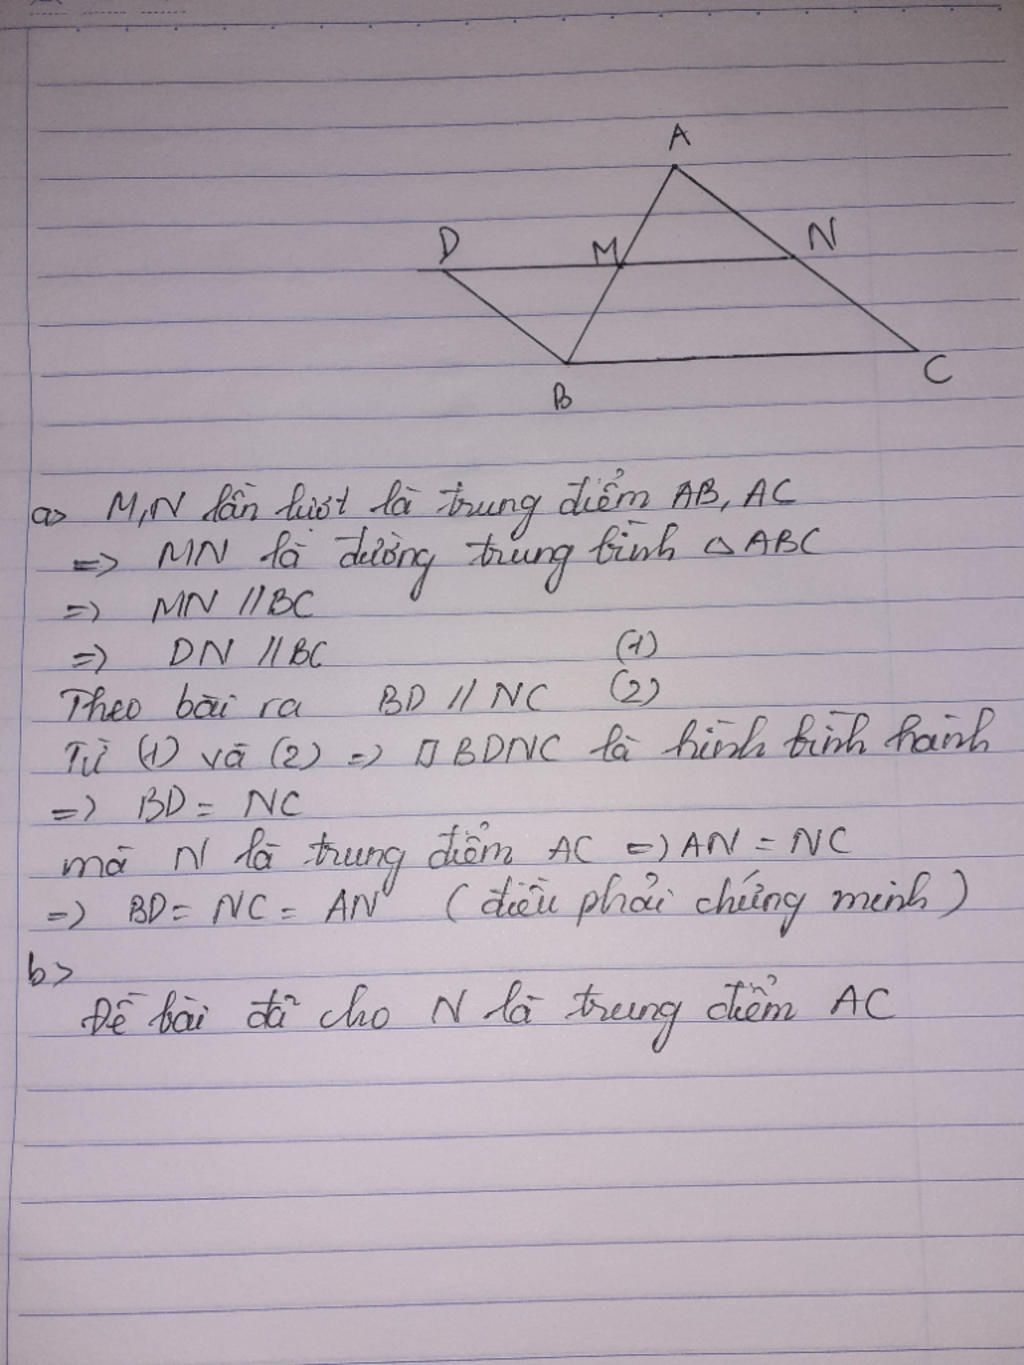 A
D
M
N
B
C
a> M,N lần lượt là trung điểm AB, AC
=> MN là đường trung bình △ABC
=> MN // BC
=> DN // BC (1)
Theo bài ra BD // NC (2)
Từ (1) và (2) => ▱BDNC là hình bình hành
=> BD = NC
mà N là trung điểm AC => AN = NC
=> BD = NC = AN (điều phải chứng minh)
b>
Đề bài đã cho N là trung điểm AC